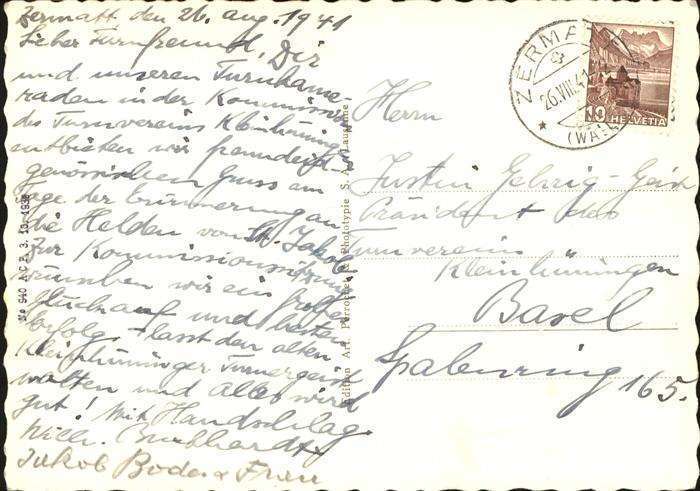 Zermatt den 26. Aug. 1941
Lieber Turnfreund, Dir
und unseren Turnkame-
raden in der Kommission
des Turnvereins Kleinhüningen
entbieten wir freundeid-
genössischen Gruss am
Tage der Erinnerung an
die Helden von St. Jakob.
Zur Kommissionssitzung
wünschen wir ein frohes
Glückauf und besten
Erfolg - lasst den alten
Kleinhüninger Turnergeist
walten und alles wird
gut! Mit Handschlag
Willi. Burkhardt
Jakob Boder & Frau
No 940 A C P 3. 10. 1938
Edition Art. Perrochet Phototypie S. A. Lausanne
ZERMATT
26.VIII.41
(WALLIS)
10 HELVETIA
Herrn
Justin Gehrig-Geist
Präsident des
Turnvereins
Kleinhüningen
Basel
Spalenring 165.